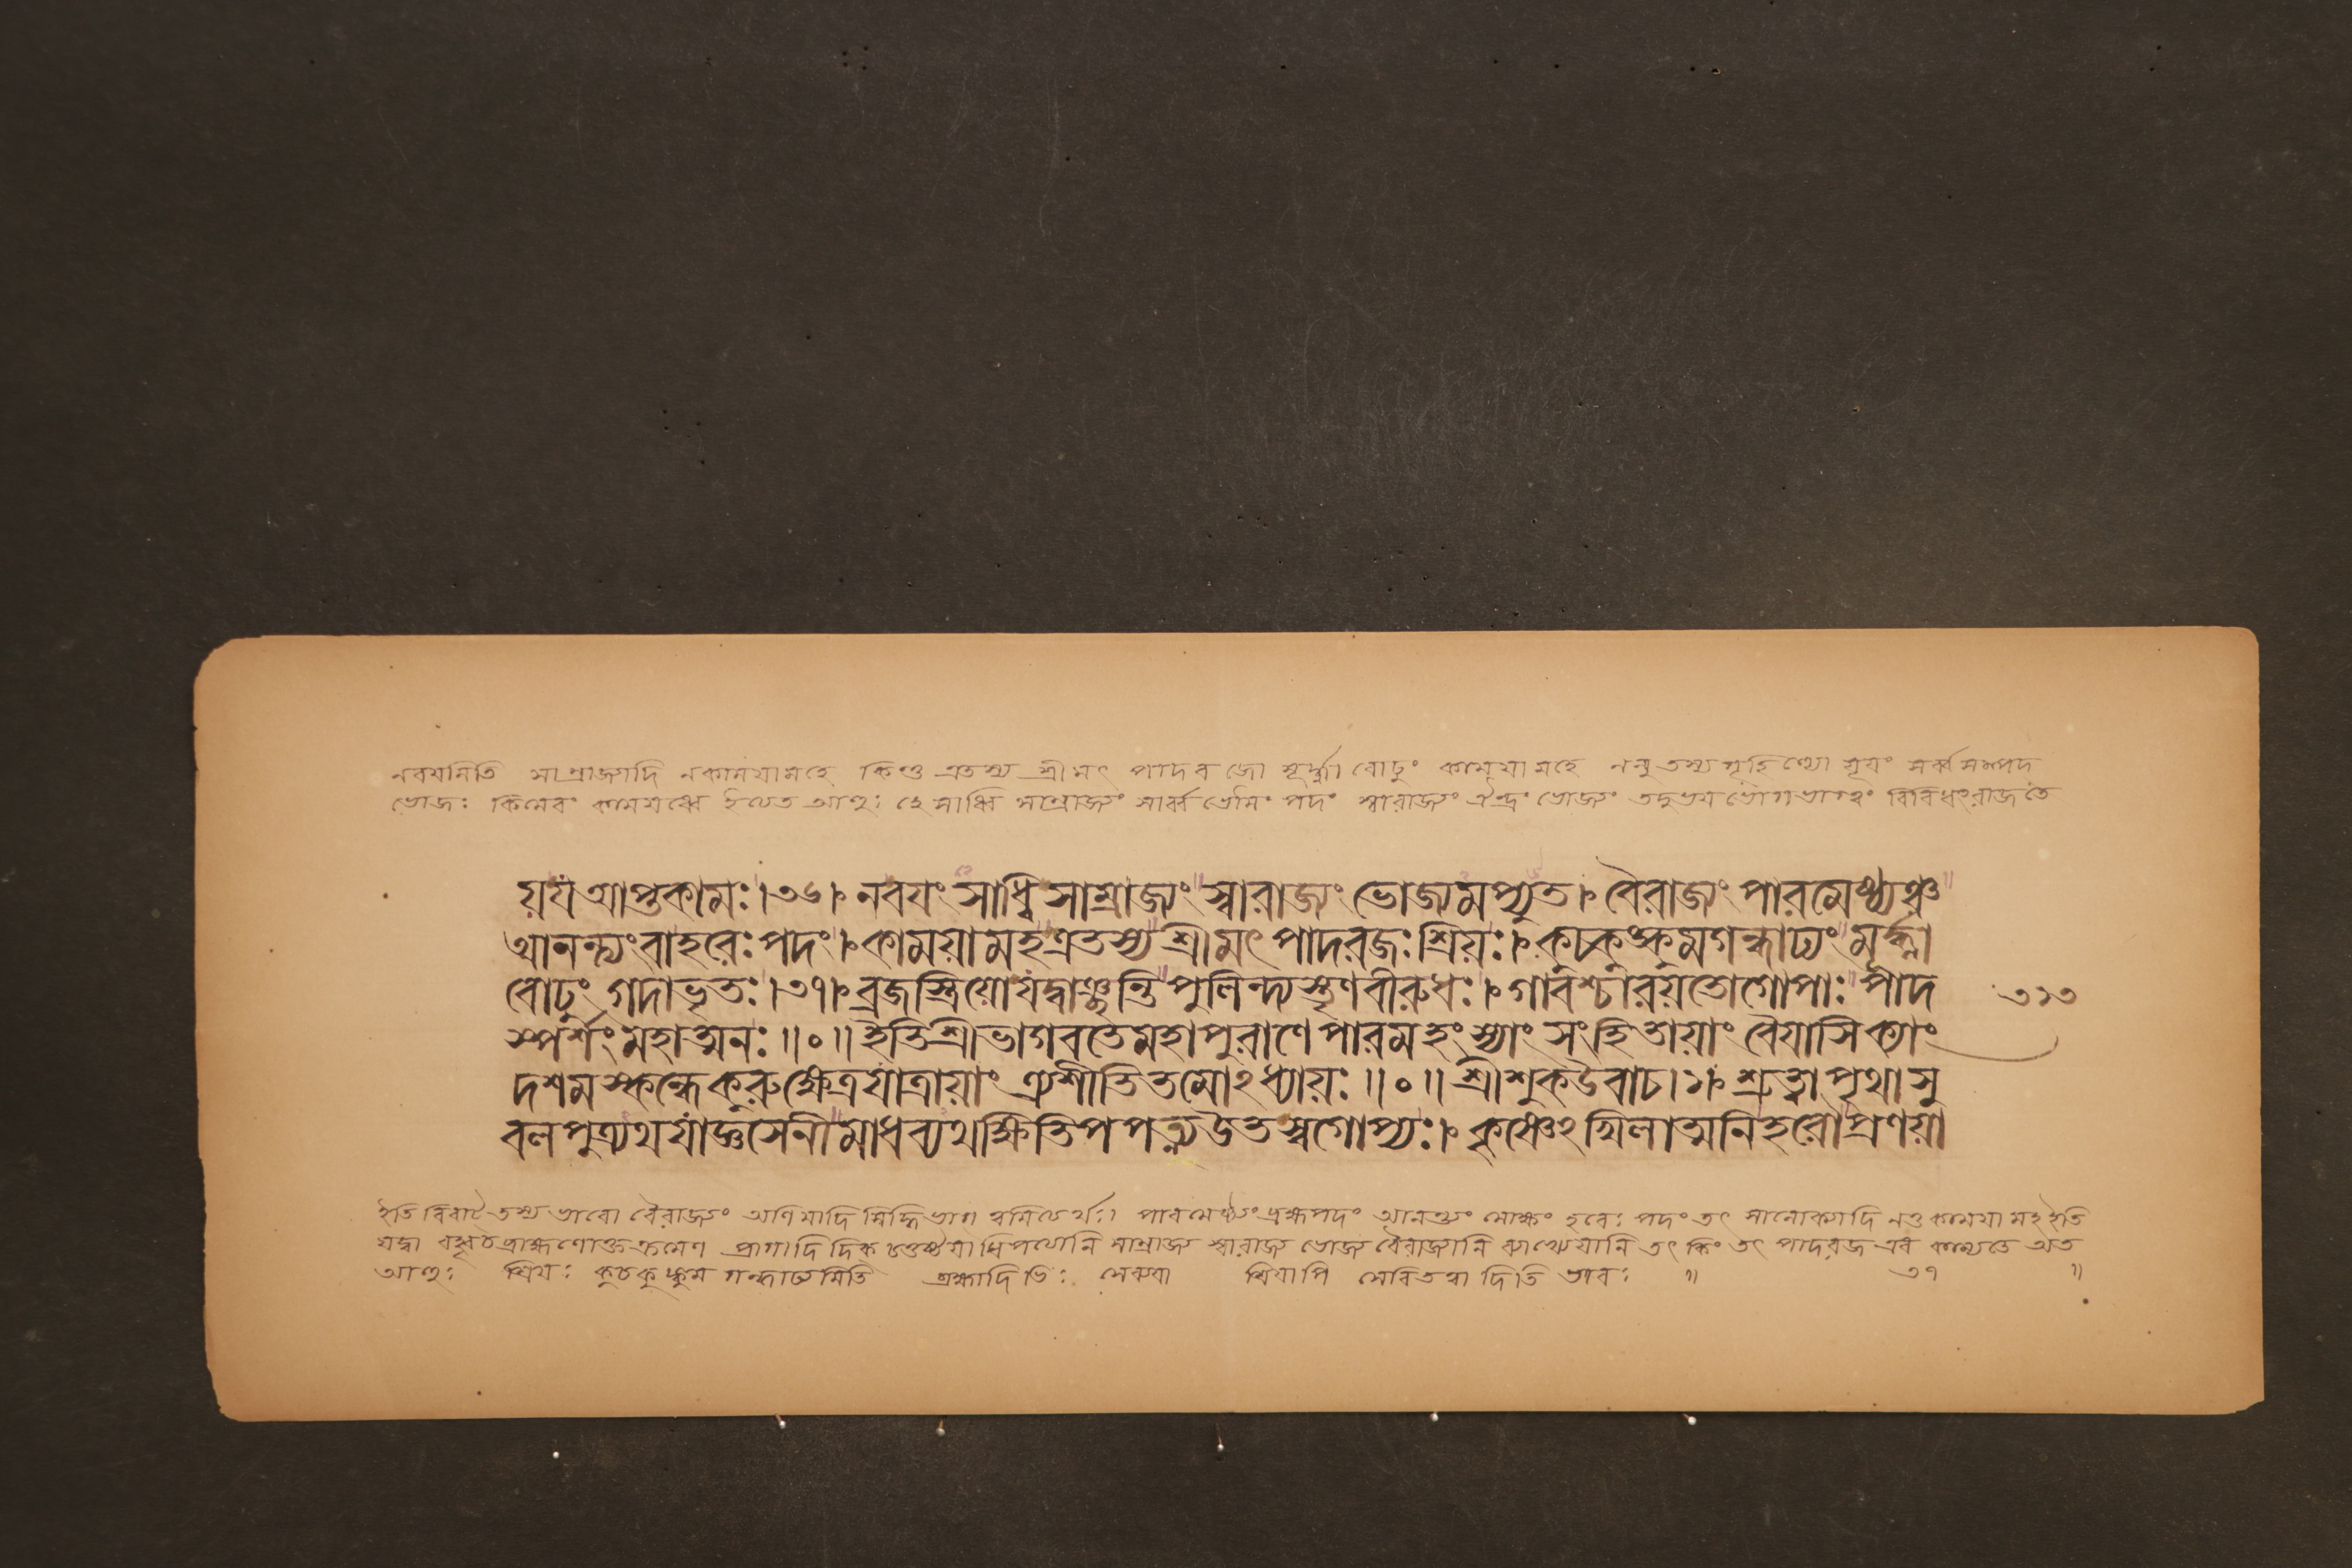 নবযমিতি সাম্রাজ্যাদি নকাময়ামহে কিন্তু এতস্য শ্রীমৎ পাদরজো মূর্দ্ধ্না বোঢ়ুং কাময়ামহে ননু তস্য গৃহিণ্যো যূয়ং সর্ব্বসম্পদ
ভোজঃ কিমেবং কাময়ধ্বে ইত্যেত আহুঃ হে সাধ্বি সাম্রাজ্যং সার্ব্বভৌমং পদং স্বারাজ্যং ঐন্দ্রং ভোজ্যং তদুভয়ভোগভাগত্বং বিবিধংরাজতে
য়যং আপ্তকামঃ।৩৬। নবযং সাধ্বিসাম্রাজ্যং স্বারাজ্যং ভোজ্যমপ্যুত। বৈরাজ্যং পারমেষ্ঠ্যঞ্চ
আনন্ত্যংবাহরেঃপদং। কাময়ামহএতস্য শ্রীমৎপাদরজঃশ্রিয়ঃ। কুচকুঙ্কুমগন্ধাঢ্যং মূর্দ্ধ্না
বোঢ়ুং গদাভৃতঃ।৩৭। ব্রজস্ত্রিয়োযদ্বাঞ্ছন্তিপুলিন্দ্যস্তৃণবীরুধঃ। গাবশ্চারয়তোগোপাঃ পাদ
স্পর্শংমহাত্মনঃ॥০॥ইতিশ্রীভাগবতেমহাপুরাণেপারমহংস্যাং সংহিতায়াং বৈয়াসিক্যাং
৩১৩
দশমস্কন্ধেকুরুক্ষেত্রযাত্রায়াং ত্র্যশীতিতমোঽধ্যায়ঃ॥০॥শ্রীশুকউবাচ।১। শ্রুত্বাপৃথাসু
বলপুত্র্যথযাজ্ঞসেনীমাধব্যথক্ষিতিপপত্ন্যউতস্বগোপ্যঃ। কৃষ্ণেঽখিলাত্মনিহরৌপ্রণয়া
ইতি বিরাট্ তস্য ভাবো বৈরাজ্যং অণিমাদি সিদ্ধিভাগ ত্বমিত্যর্থঃ। পারমেষ্ঠ্যংব্রহ্মপদং আনন্ত্যং মোক্ষং হরেঃ পদং তৎ সালোক্যাদি নতু কাময়ামহইতি
যদ্বা বহ্বৃচব্রাহ্মণোক্তক্রমেণ প্রাগাদি দিক্ চতুষ্টয়াধিপত্যোনি সাম্রাজ্য স্বারাজ্য ভোজ্য বৈরাজ্যানি তৎ কিং তৎ পাদরজ এব কাম্যেতে অত
আহুঃ শ্রিয়ঃ কুচকুঙ্কুম গন্ধাঢ্যমিতি ব্রহ্মাদিভিঃ সেব্যয়া শ্রিয়াপি সেবিতত্বাদিতি ভাবঃ ॥ ৩৭ ॥